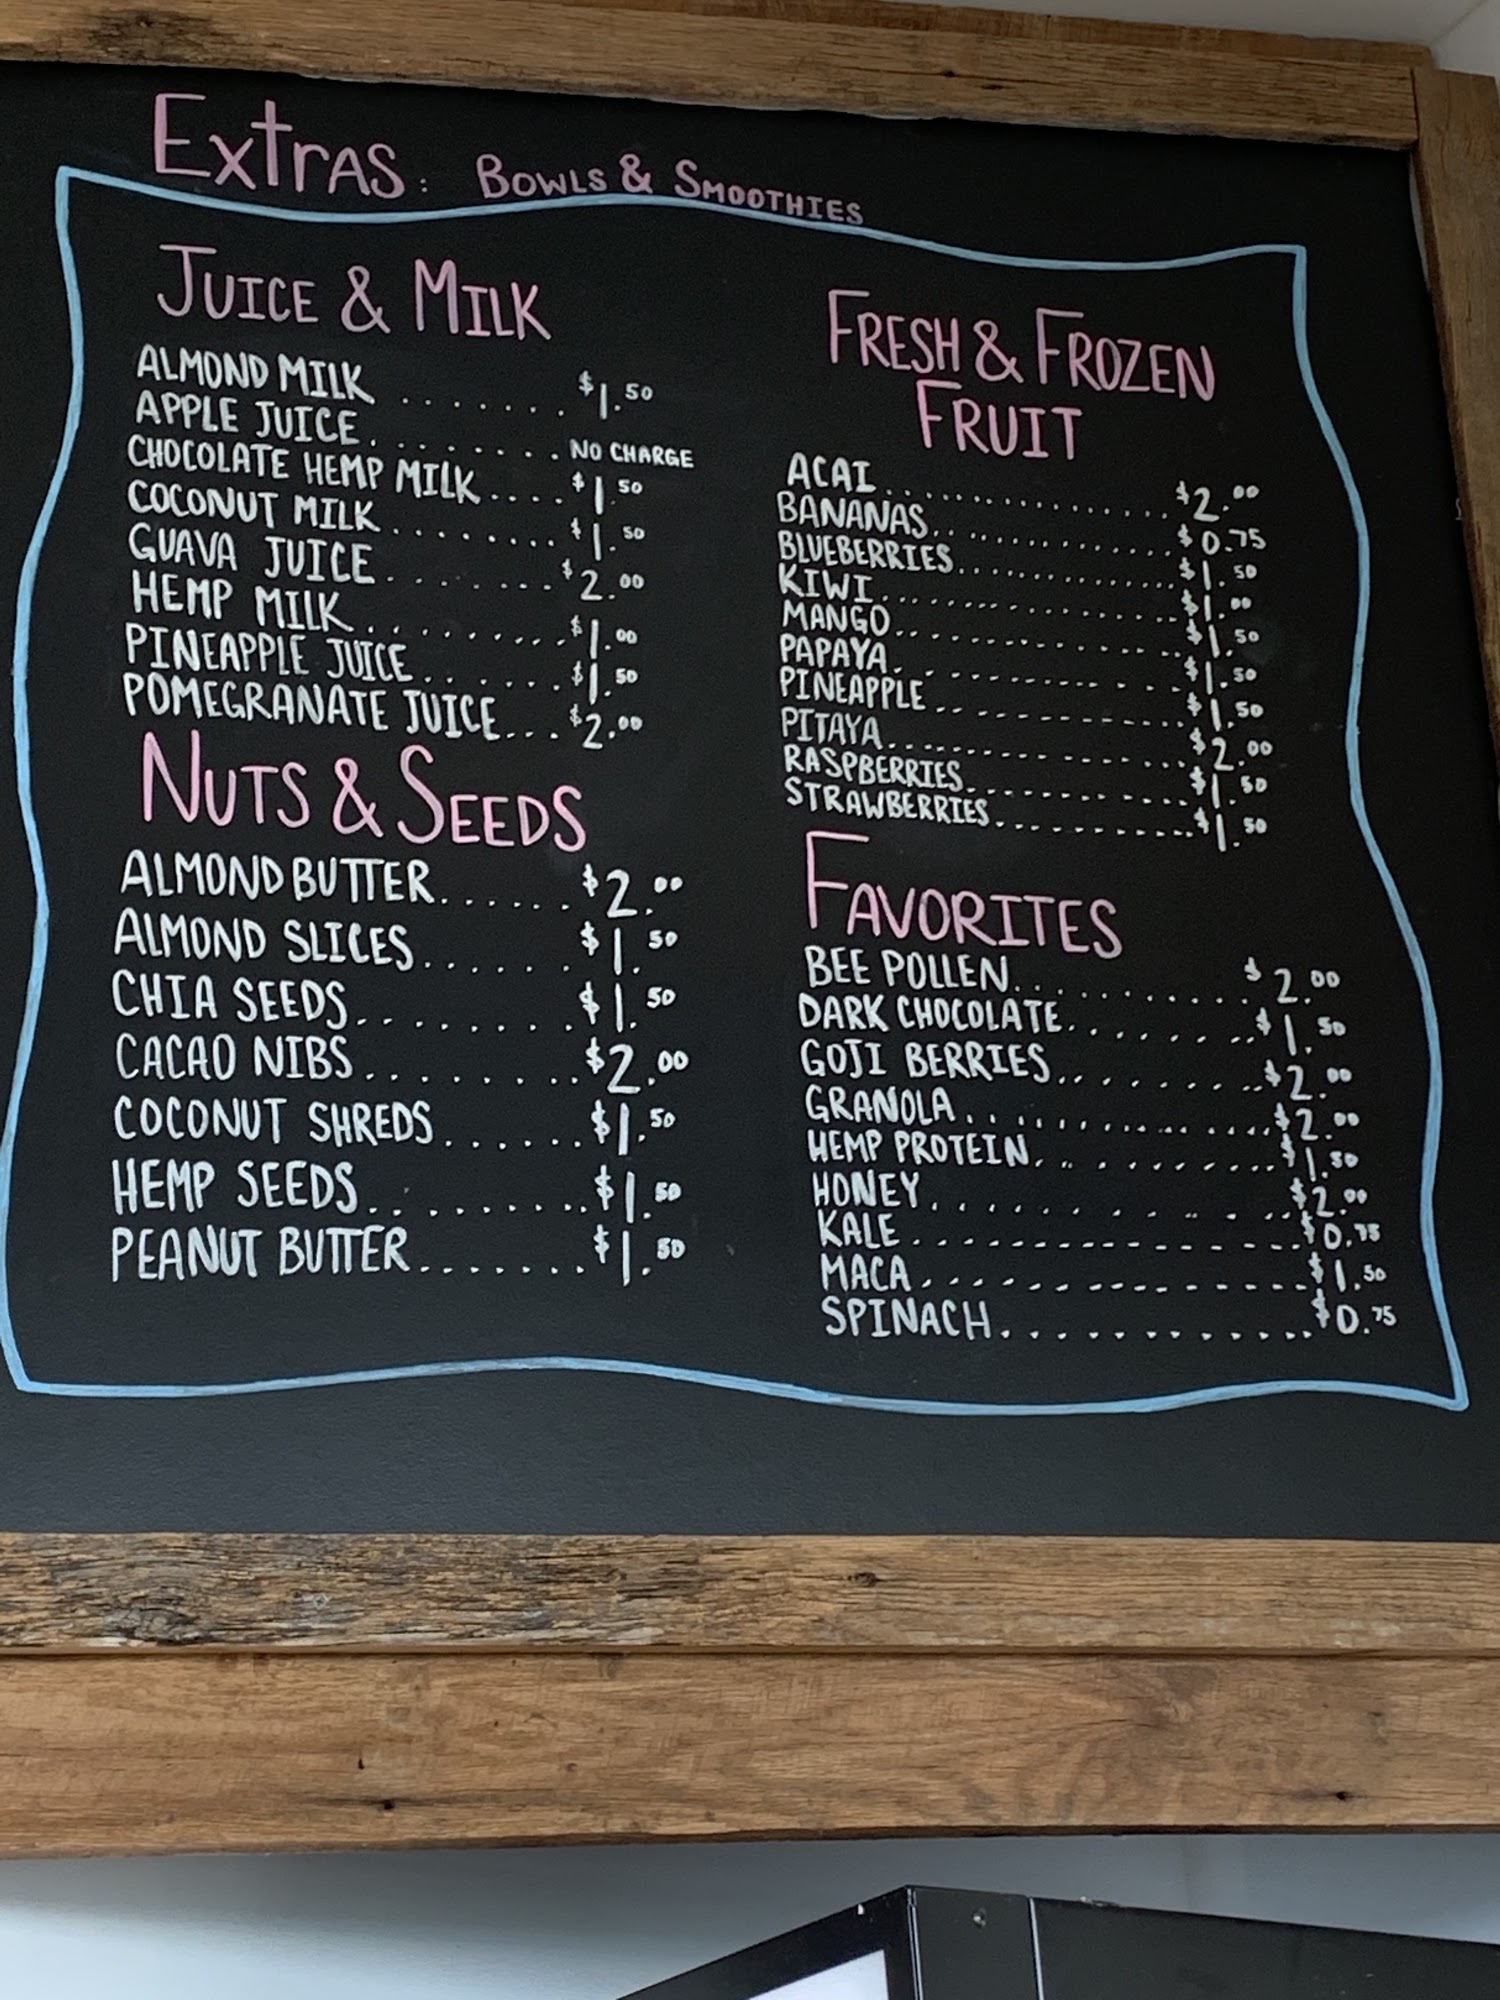 Extras: Bowls & Smoothies
Juice & Milk
ALMOND MILK ....... $1.50
APPLE JUICE......... NO CHARGE
CHOCOLATE HEMP MILK.... $1.50
COCONUT MILK........ $1.50
GUAVA JUICE....... $2.00
HEMP MILK......... $1.00
PINEAPPLE JUICE....... $1.50
POMEGRANATE JUICE... $2.00
Nuts & Seeds
ALMOND BUTTER...... $2.00
ALMOND SLICES...... $1.50
CHIA SEEDS........ $1.50
CACAO NIBS......... $2.00
COCONUT SHREDS...... $1.50
HEMP SEEDS......... $1.50
PEANUT BUTTER....... $1.50
Fresh & Frozen
Fruit
ACAI.............. $2.00
BANANAS............. $0.75
BLUEBERRIES............. $1.50
KIWI............... $1.00
MANGO............... $1.50
PAPAYA............. $1.50
PINEAPPLE............ $1.50
PITAYA............... $2.00
RASPBERRIES........... $1.50
STRAWBERRIES........... $1.50
Favorites
BEE POLLEN.......... $2.00
DARK CHOCOLATE........ $1.50
GOJI BERRIES.......... $2.00
GRANOLA.............. $2.00
HEMP PROTEIN.......... $1.50
HONEY............ $2.00
KALE............... $0.75
MACA............... $1.50
SPINACH............ $0.75